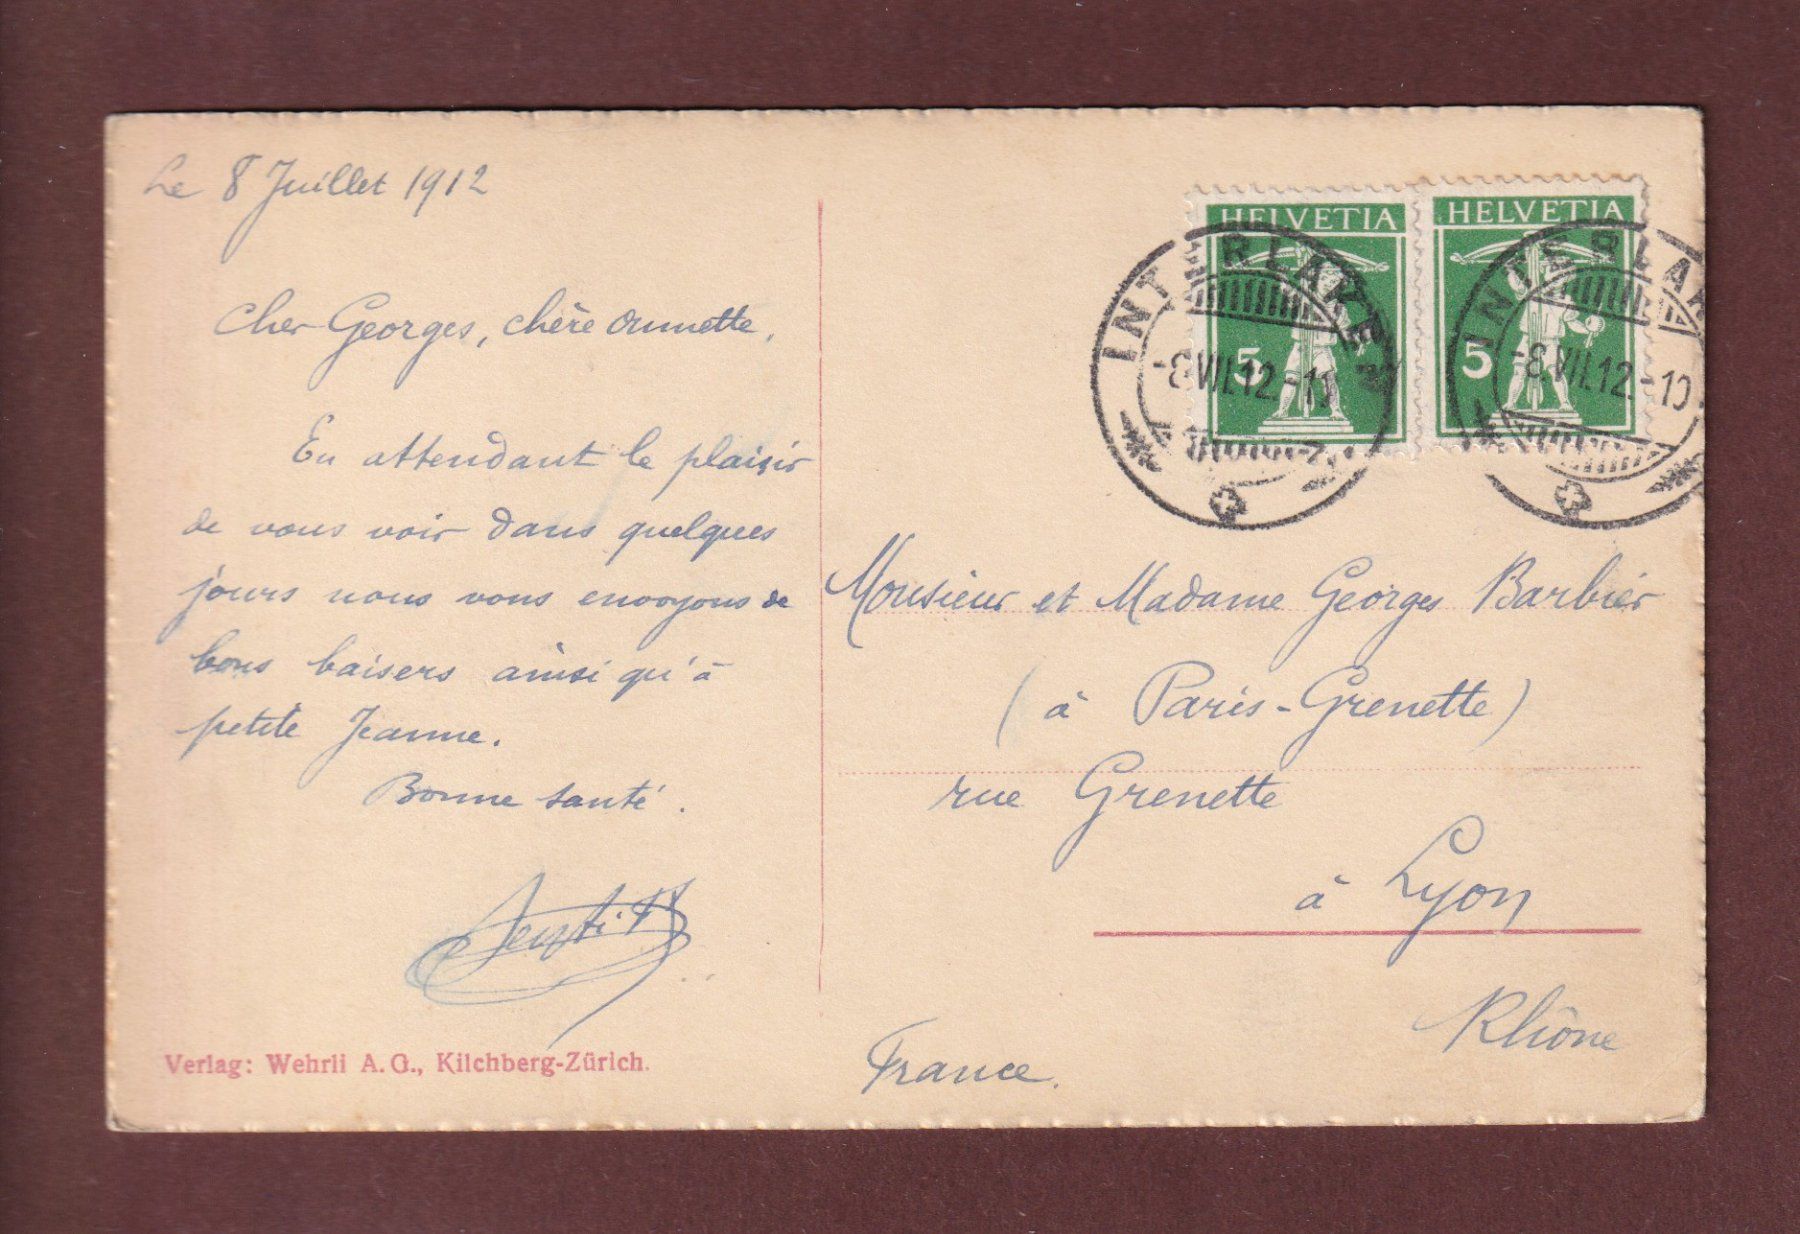 Le 8 Juillet 1912
Cher Georges, chère
En attendant le plaisir
de vous voir dans quelques
jours nous vous envoyons de
bons baisers ainsi qu'à
petite Jeanne.
Bonne santé.
Verlag: Wehrli A. G., Kilchberg-Zürich.
HELVETIA
5
HELVETIA
5
INTERLAKEN
-8.VII.12.-10
INTERLAKEN
-8.VII.12.-10
Monsieur et Madame Georges Barbier
(à Paris-Grenette)
rue Grenette
à Lyon
Rhône
France.